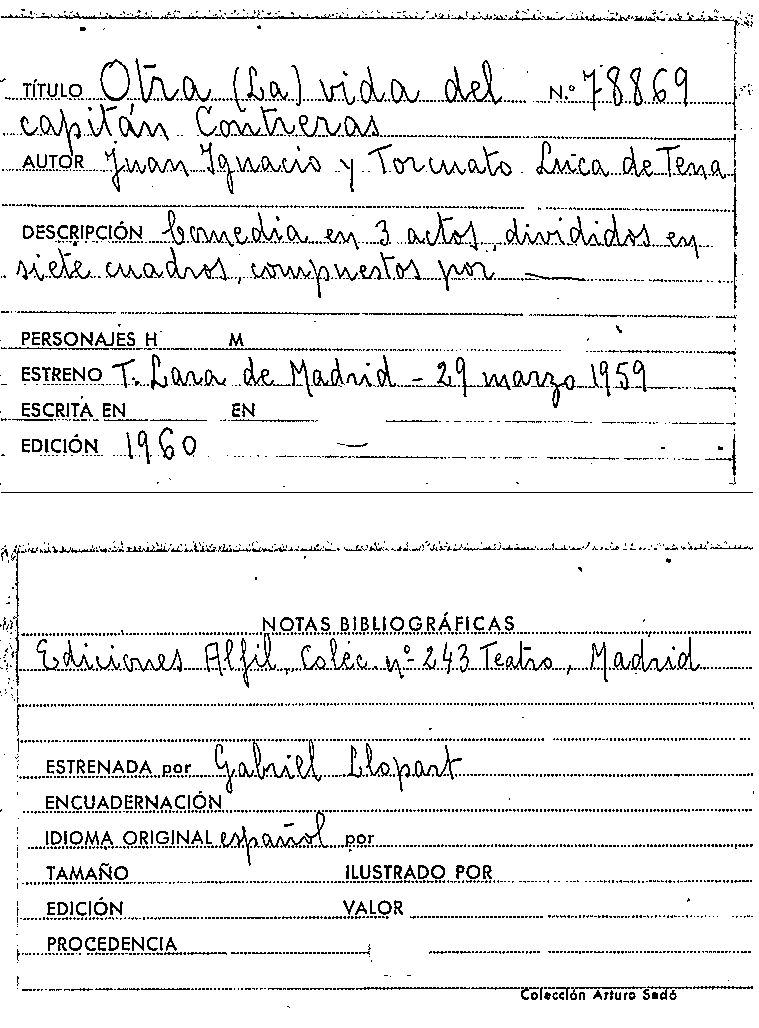 TÍTULO Otra (La) vida del N.º 78869
capitán Contreras
AUTOR Juan Ignacio y Torcuato Luca de Tena
DESCRIPCIÓN Comedia en 3 actos, divididos en
siete cuadros, compuestos por —
PERSONAJES H M
ESTRENO T. Lara de Madrid - 29 marzo 1959
ESCRITA EN EN
EDICIÓN 1960 —
NOTAS BIBLIOGRÁFICAS
Ediciones Alfil, Colec. nº 243 Teatro, Madrid
ESTRENADA por Gabriel Llopart
ENCUADERNACIÓN
IDIOMA ORIGINAL español por
TAMAÑO ILUSTRADO POR
EDICIÓN VALOR
PROCEDENCIA
Colección Arturo Sedó